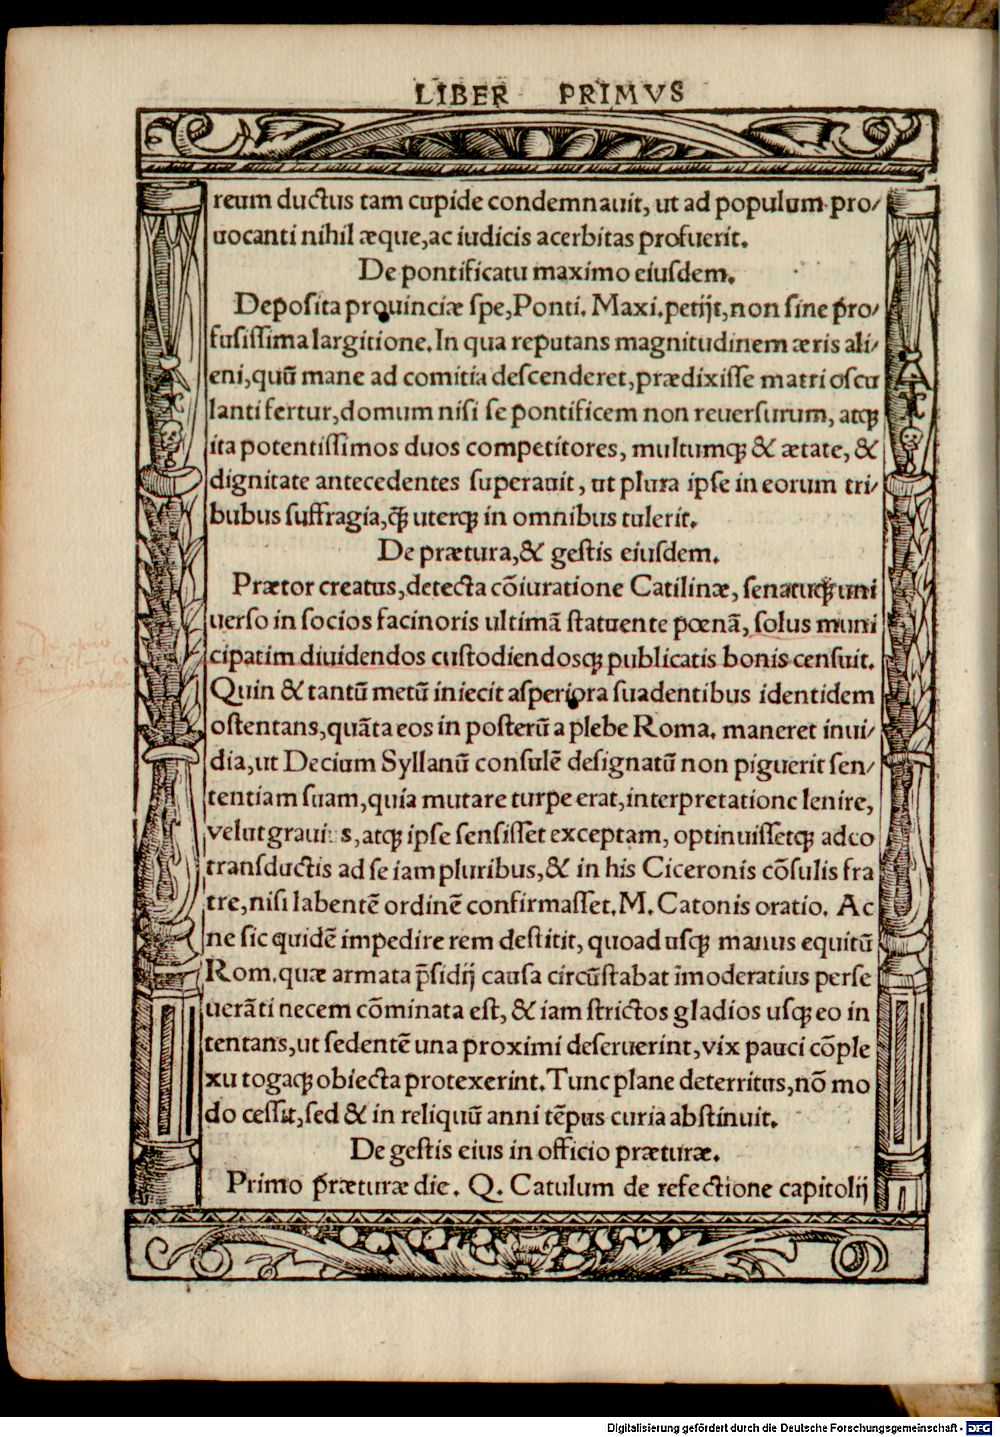 LIBER PRIMVS
reum ductus tam cupide condemnauit, ut ad populum pro/
uocanti nihil æque, ac iudicis acerbitas profuerit.
De pontificatu maximo eiusdem.
Deposita prouinciæ spe, Ponti. Maxi. petijt, non sine pro/
fusissima largitione. In qua reputans magnitudinem æris ali/
eni, quū mane ad comitia descenderet, prædixisse matri oscu
lanti fertur, domum nisi se pontificem non reuersurum, atqꝫ
ita potentissimos duos competitores, multumqꝫ & ætate, &
dignitate antecedentes superauit, ut plura ipse in eorum tri/
bubus suffragia, q̄ꝫ uterqꝫ in omnibus tulerit.
De prætura, & gestis eiusdem.
Prætor creatus, detecta cōiuratione Catilinæ, senatuqꝫ uni
uerso in socios facinoris ultimā statuente pœnā, solus muni
cipatim diuidendos custodiendosqꝫ publicatis bonis censuit.
Quin & tantū metū iniecit asperiora suadentibus identidem
ostentans, quāta eos in posterū a plebe Roma. maneret inui/
dia, ut Decium Syllanū consulē designatū non piguerit sen/
tentiam suam, quia mutare turpe erat, interpretatione lenire,
velut graui s, atqꝫ ipse sensisset exceptam, optinuissetqꝫ adeo
transductis ad se iam pluribus, & in his Ciceronis cōsulis fra
tre, nisi labentē ordinē confirmasset. M. Catonis oratio. Ac
ne sic quidē impedire rem destitit, quoad usqꝫ manus equitū
Rom. quæ armata p̄sidij causa circūstabat īmoderatius perse
uerāti necem cōminata est, & iam strictos gladios usqꝫ eo in
tentans, ut sedentē una proximi deseruerint, vix pauci cōple
xu togaqꝫ obiecta protexerint. Tunc plane deterritus, nō mo
do cessit, sed & in reliquū anni tēpus curia abstinuit.
De gestis eius in officio præturæ.
Primo præturæ die. Q. Catulum de refectione capitolij
Digitalisierung gefördert durch die Deutsche Forschungsgemeinschaft - DFG